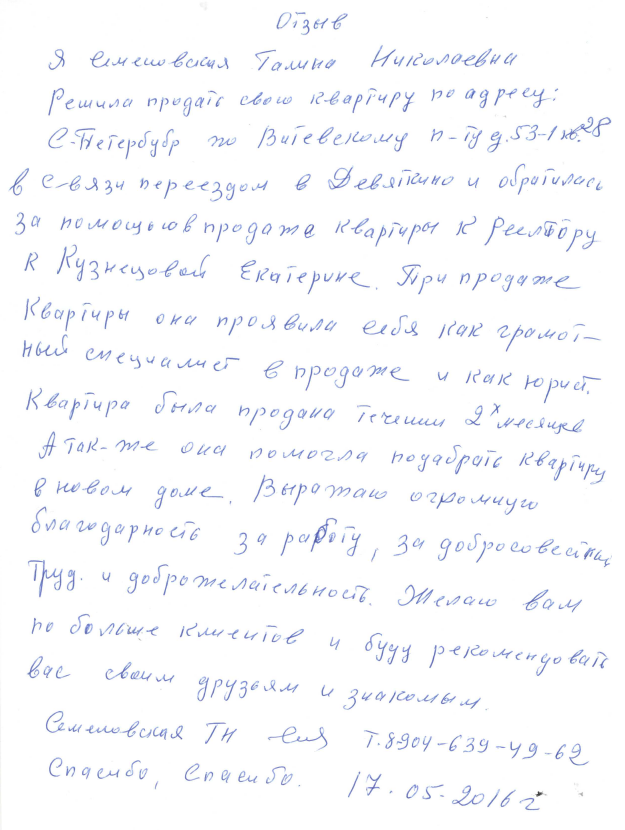 Отзыв
Я Семеловская Галина Николаевна
Решила продать свою квартиру по адресу:
С-Петербубр по Витевскому п-ту д.53-1 кв.28
в с-вязи переездом в Девяткино и обратилась
за помощью в продаже квартиры к Реелтору
к Кузнецовой Екатерине. При продаже
Квартиры она проявила себя как грамот-
ный специалист в продаже и как юрист.
Квартира была продана течении 2х месяцев
А так-же она помогла подабрать квартиру
в новом доме. Выражаю огромную
благодарность за работу, за добросовестный
Труд. и доброжелательность. Желаю вам
по больше клиентов и буду рекомендовать
вас своим друзьям и знакомым.
Семеловская ТН Т.8904-639-49-62
Спасибо, Спасибо. 17.05.2016 г